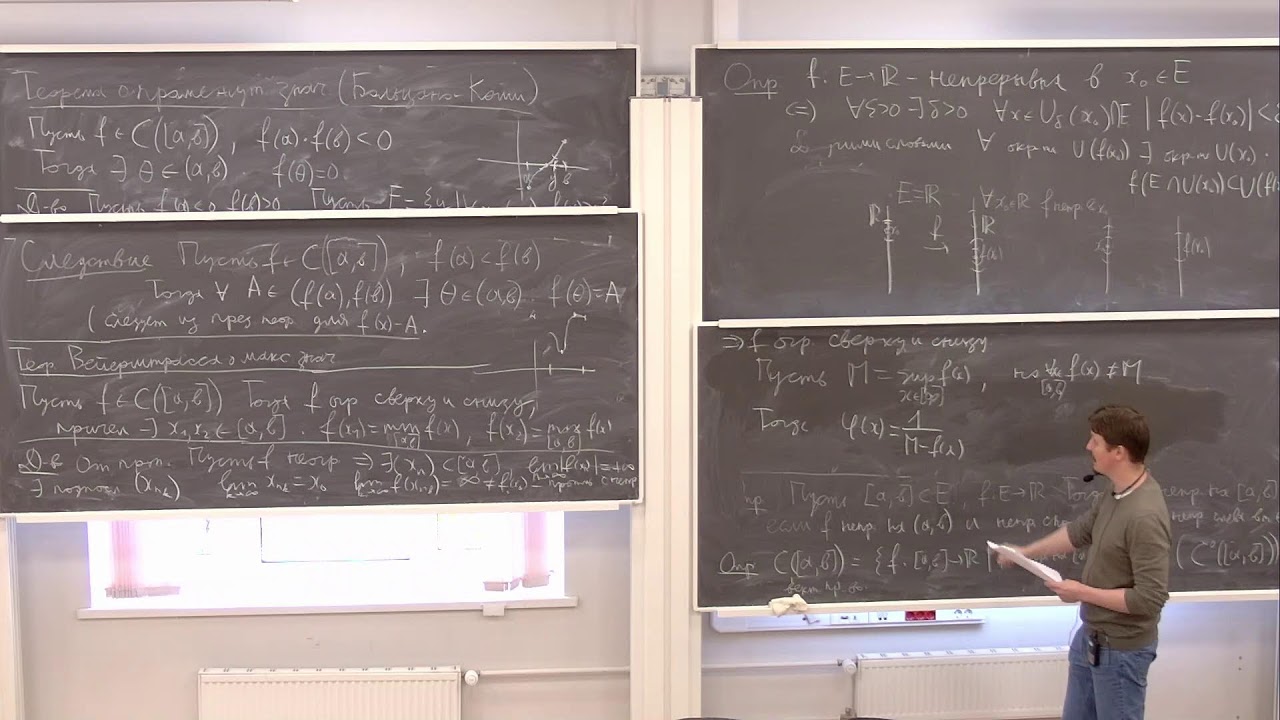 Теорема о промежут знач (Больцано-Коши)
Пусть f ∈ C([a,b]), f(a)·f(b)<0
Тогда ∃ θ ∈ (a,b) . f(θ)=0.
Д-во Пусть f(a)<0 f(b)>0 Пусть E = {
Следствие Пусть f ∈ C([a,b]), f(a)<f(b)
Тогда ∀ A ∈ (f(a), f(b)) ∃ θ ∈ (a,b) . f(θ)=A
(следует из пред теор для f(x)-A.
Теор Вейерштрасса о макс знач
Пусть f ∈ C([a,b]) Тогда f огр сверху и снизу,
причем ∃ x₁,x₂ ∈ [a,b] . f(x₁)=min f(x), f(x₂)=max f(x)
[a,b] [a,b]
Д-в От прот. Пусть f неогр ⇒ ∃(xₙ) ⊂ [a,b] lim |f(xₙ)|=+∞
∃ подпосл (xₙₖ) lim xₙₖ = x₀ lim f(xₙₖ) = ∞ ≠ f(x₀) - против с непр
k→∞ k→∞
Опр f: E→ℝ - непрерывна в x₀ ∈ E
⇔ ∀ε>0 ∃δ>0 ∀x∈U_δ(x₀)∩E |f(x)-f(x₀)|<ε
Другими словами ∀ окр-ти U(f(x₀)) ∃ окр-ти U(x₀) .
f(E∩U(x₀))⊂U(f(
E=ℝ ∀x₀∈ℝ f непр в x₀
ℝ f ℝ
→
f(x₀) f(x₀)
⇒ f огр сверху и снизу
Пусть M = sup f(x), но f(x) ≠ M
x∈[a,b] [a,b]
Тогда φ(x) = 1/(M-f(x))
Пусть [a,b]⊂E, f: E→ℝ Тогда непр на [a,b]
если f непр на (a,b) и непр непр слева в
Опр C([a,b]) = {f: [a,b]→ℝ | (C⁰([a,b]))
вект пр-во.